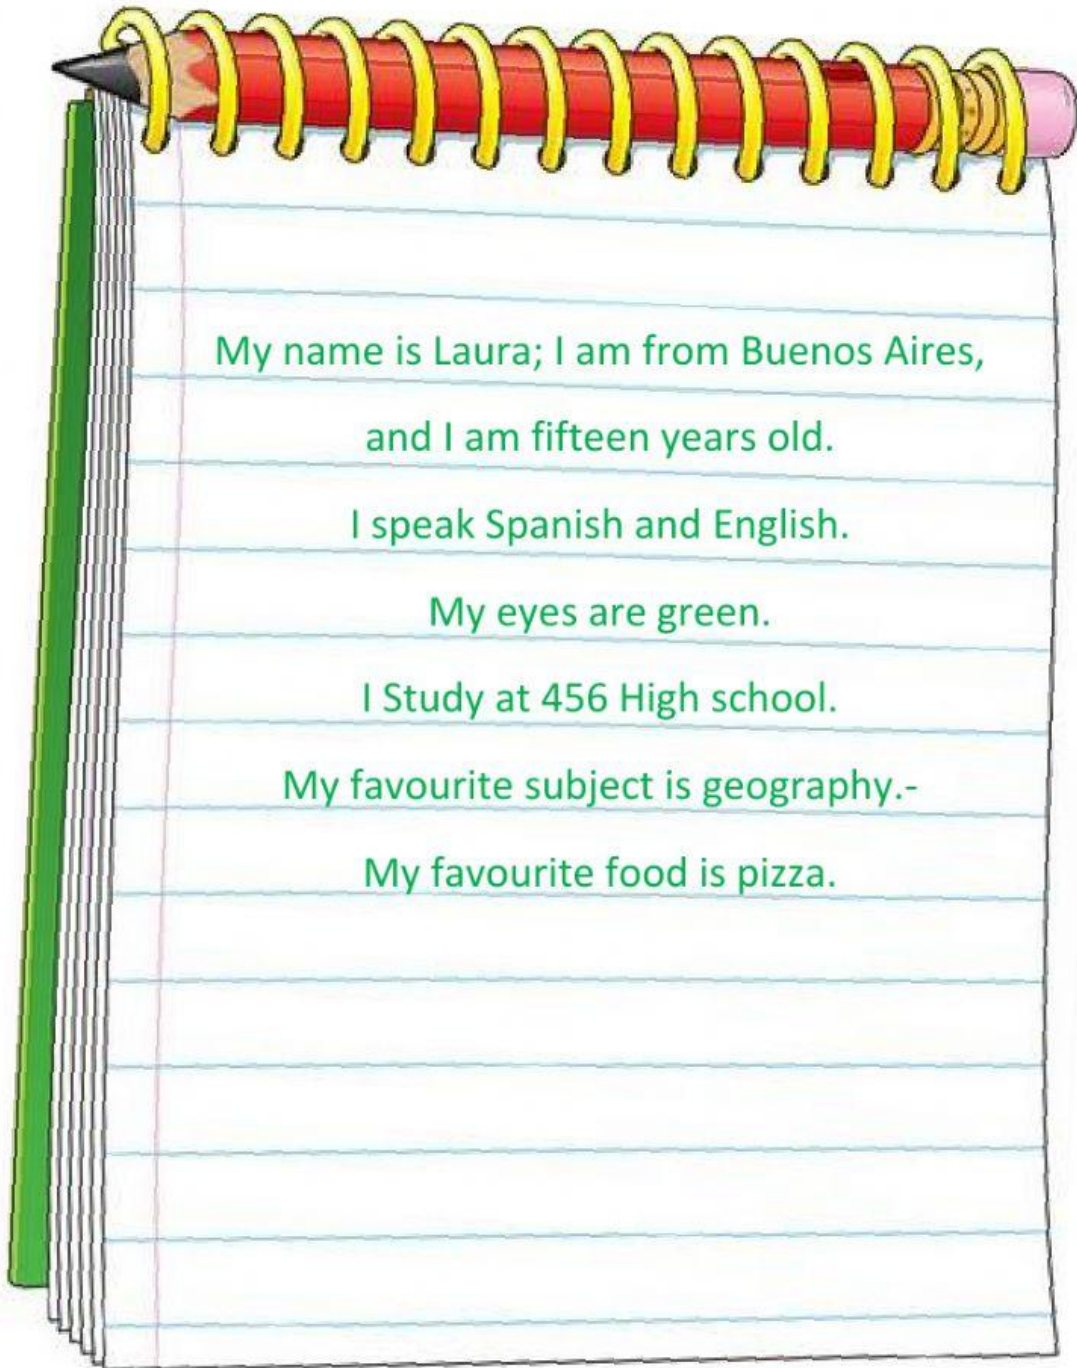 My name is Laura; I am from Buenos Aires,
and I am fifteen years old.
I speak Spanish and English.
My eyes are green.
I Study at 456 High school.
My favourite subject is geography.-
My favourite food is pizza.